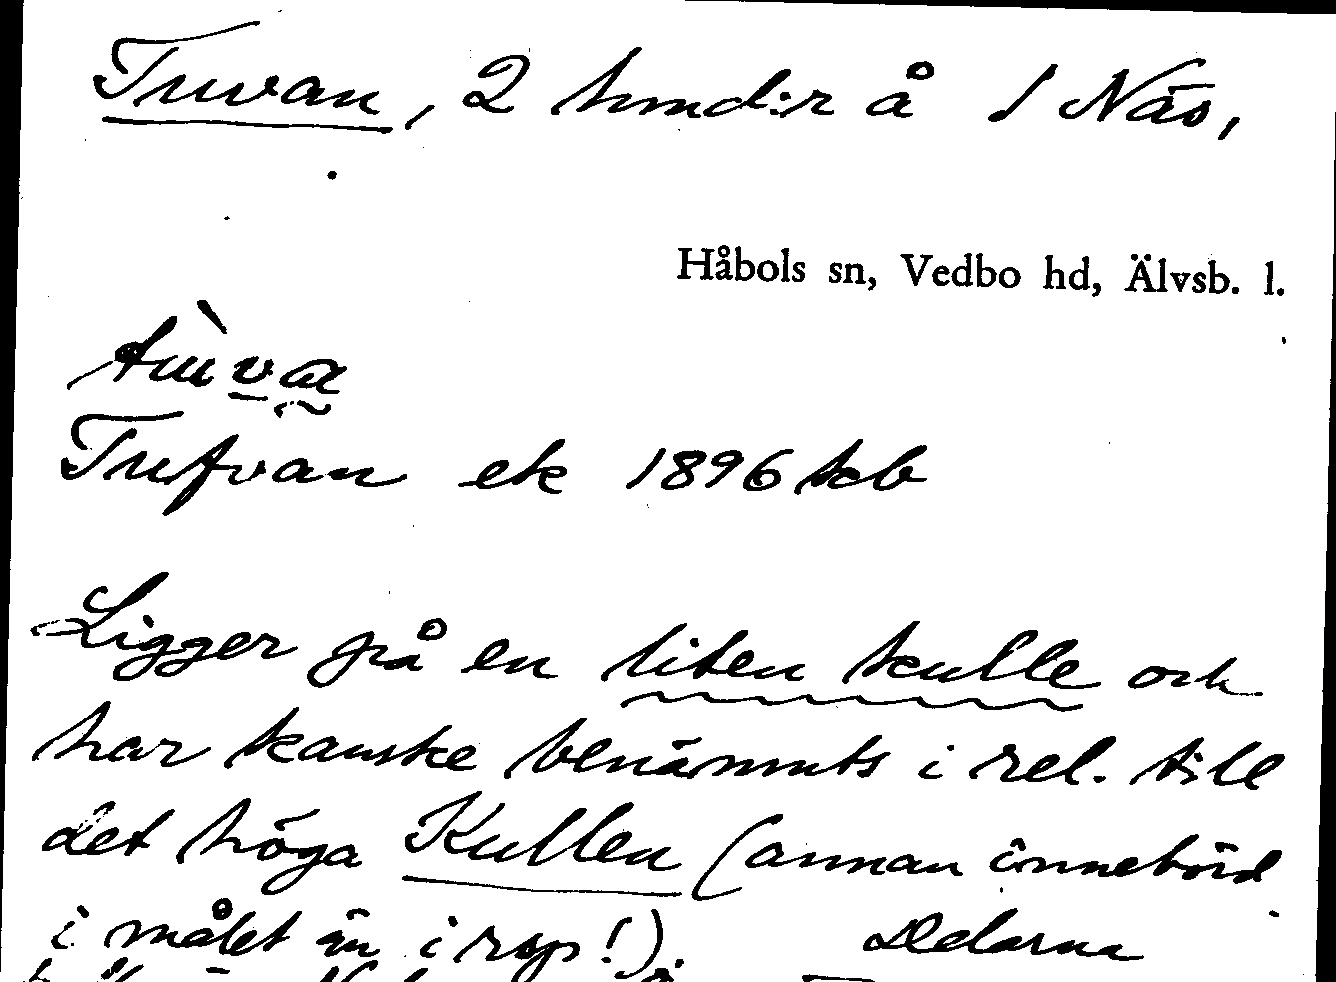 Tuvan, 2 hmd:r å 1 Näs,
Håbols sn, Vedbo hd, Älvsb. l.
Tufvan ek 1896 kb
Ligger på en liten kulle och
har kanske benämnts i rel. till
det höga Kullen (annan innebörd
i målet än i rsp!). Delarna